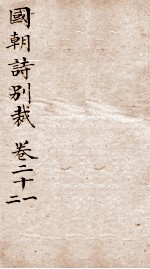 國朝詩別裁 卷二十一
二